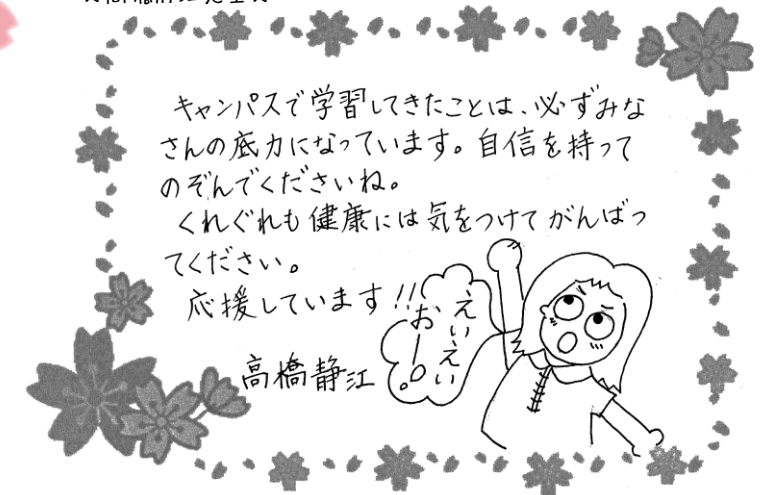 キャンパスで学習してきたことは、必ずみな
さんの底力になっています。自信を持って
のぞんでくださいね。
くれぐれも健康には気をつけてがんばっ
てください。
応援しています!!
えい、えい
おー。
高橋静江